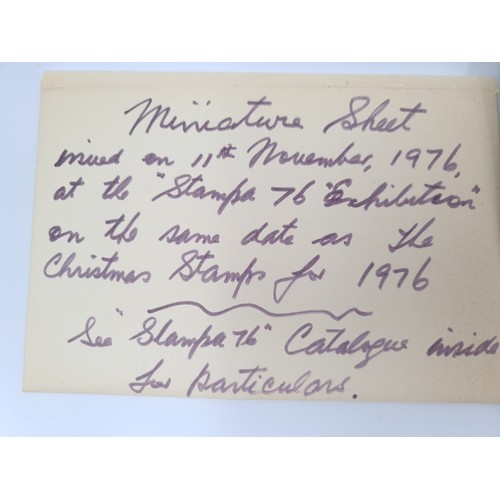 Miniature Sheet
issued on 11th November, 1976,
at the "Stampa 76 "Exhibition"
on the same date as the
Christmas Stamps for 1976
See "Stampa 76" Catalogue inside
for particulars.